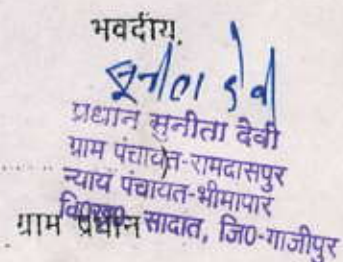 भवदीय,
सुनीता देवी
प्रधान सुनीता देवी
ग्राम पंचायत-रामदासपुर
न्याय पंचायत-भीमापार
वि०ख०- सादात, जि०-गाजीपुर
ग्राम प्रधान